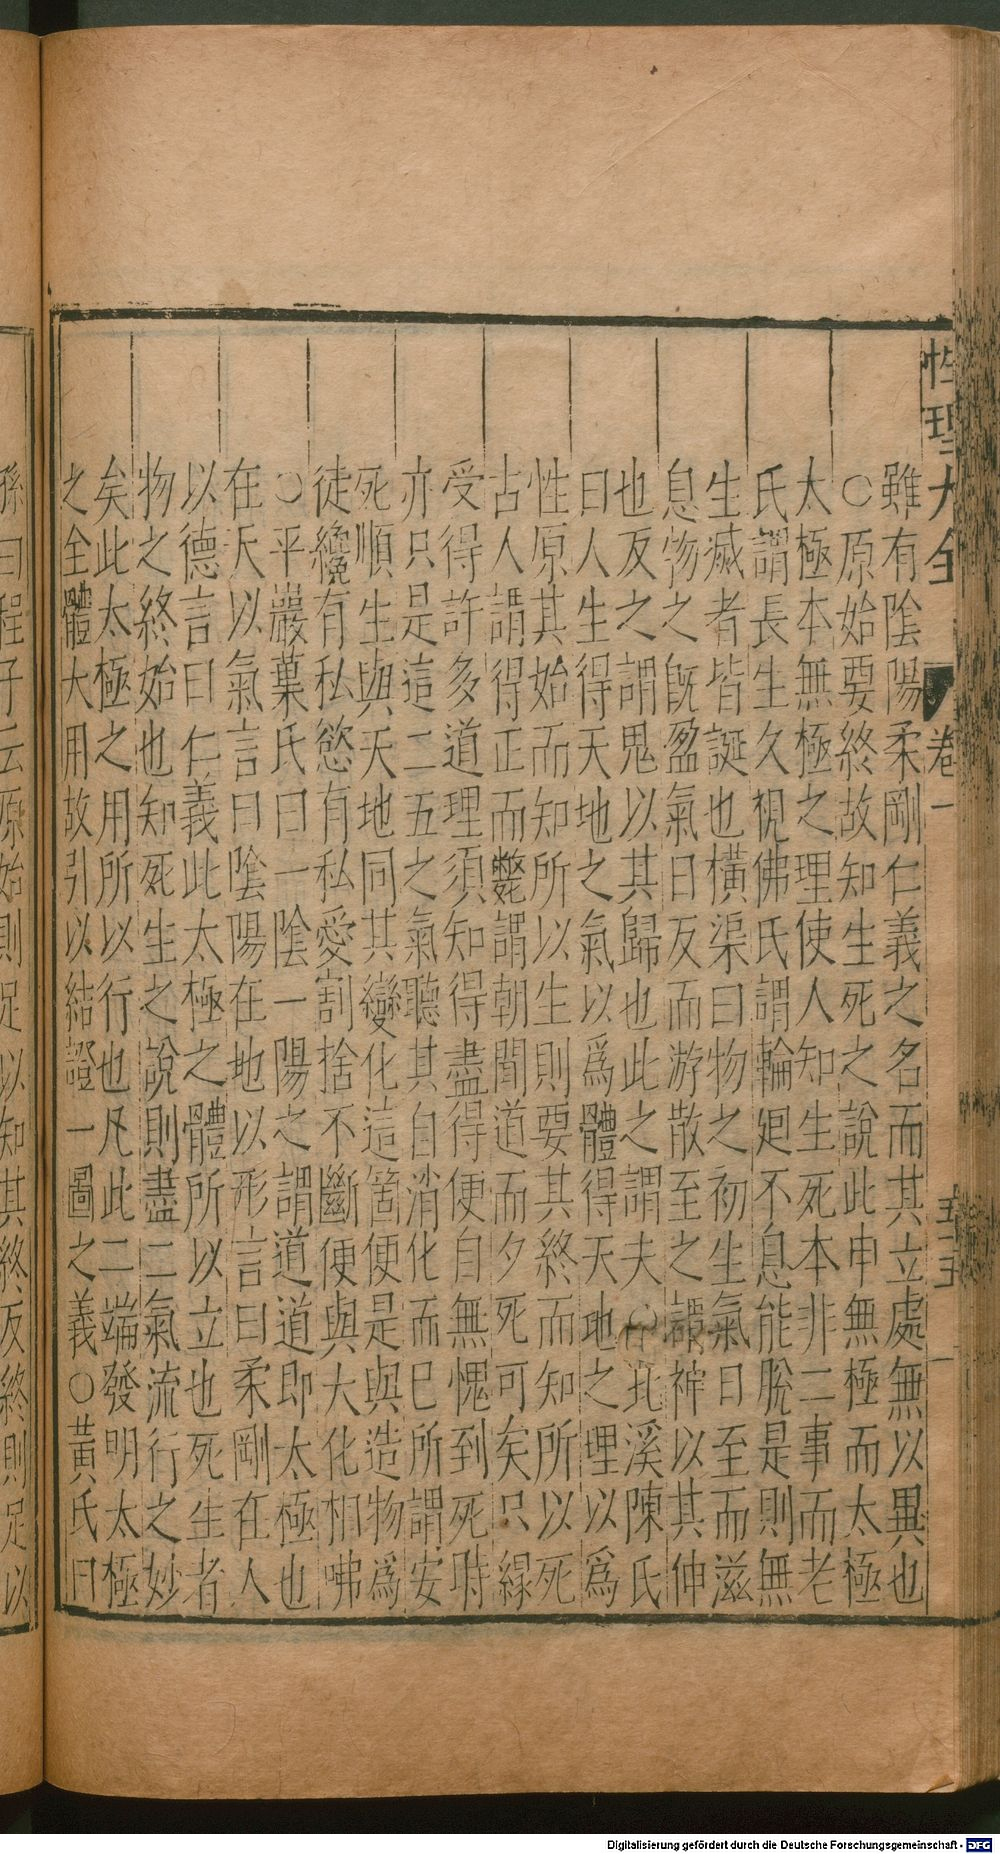 性理大全 卷一 五十五
雖有陰陽柔剛仁義之名而其立處無以異也
○原始要終故知生死之說此申無極而太極
太極本無極之理使人知生死本非二事而老
氏謂長生久視佛氏謂輪廻不息能脫是則無
生滅者皆誕也橫渠曰物之初生氣日至而滋
息物之既盈氣日反而游散至之謂神以其伸
也反之謂鬼以其歸也此之謂夫○北溪陳氏
曰人生得天地之氣以爲體得天地之理以爲
性原其始而知所以生則要其終而知所以死
古人謂得正而斃謂朝聞道而夕死可矣只緣
受得許多道理須知得盡得便自無愧到死時
亦只是這二五之氣聽其自消化而已所謂安
死順生與天地同其變化這箇便是與造物爲
徒纔有私慾有私愛割捨不斷便與大化相咈
○平巖葉氏曰一陰一陽之謂道道即太極也
在天以氣言曰陰陽在地以形言曰柔剛在人
以德言曰仁義此太極之體所以立也死生者
物之終始也知死生之說則盡二氣流行之妙
矣此太極之用所以行也凡此二端發明太極
之全體大用故引以結證一圖之義○黃氏曰
孫曰程子云原始則足以知其終反終則足以
Digitalisierung gefördert durch die Deutsche Forschungsgemeinschaft - DFG